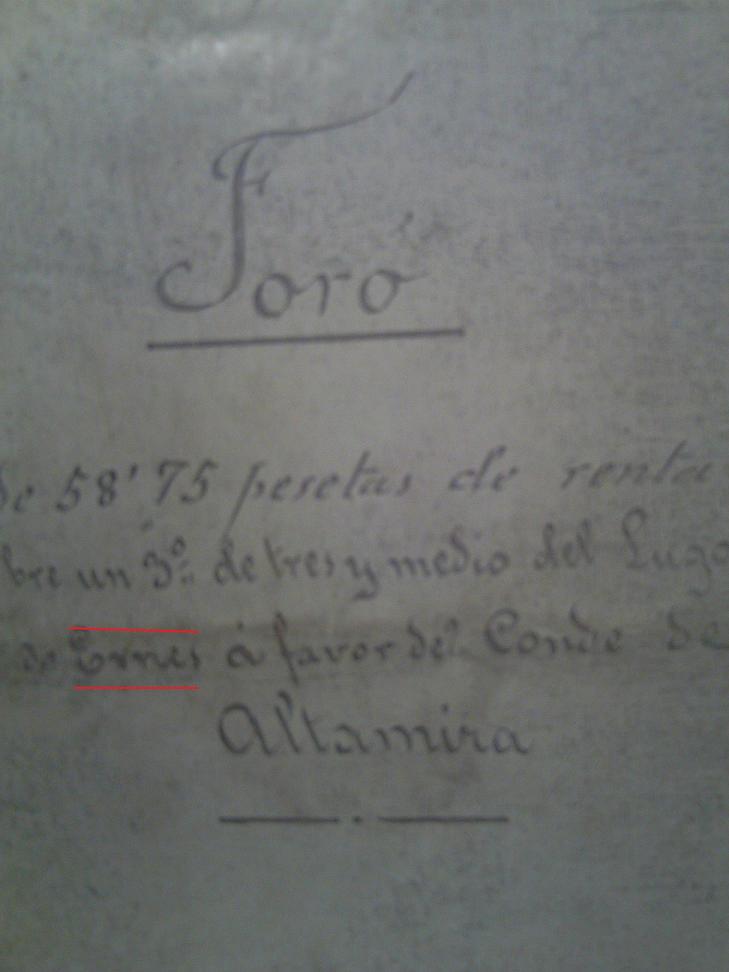 Foro
de 58'75 pesetas de renta
bre un 3º de tres y medio del Lugo
de Ernes á favor del Conde de
Altamira